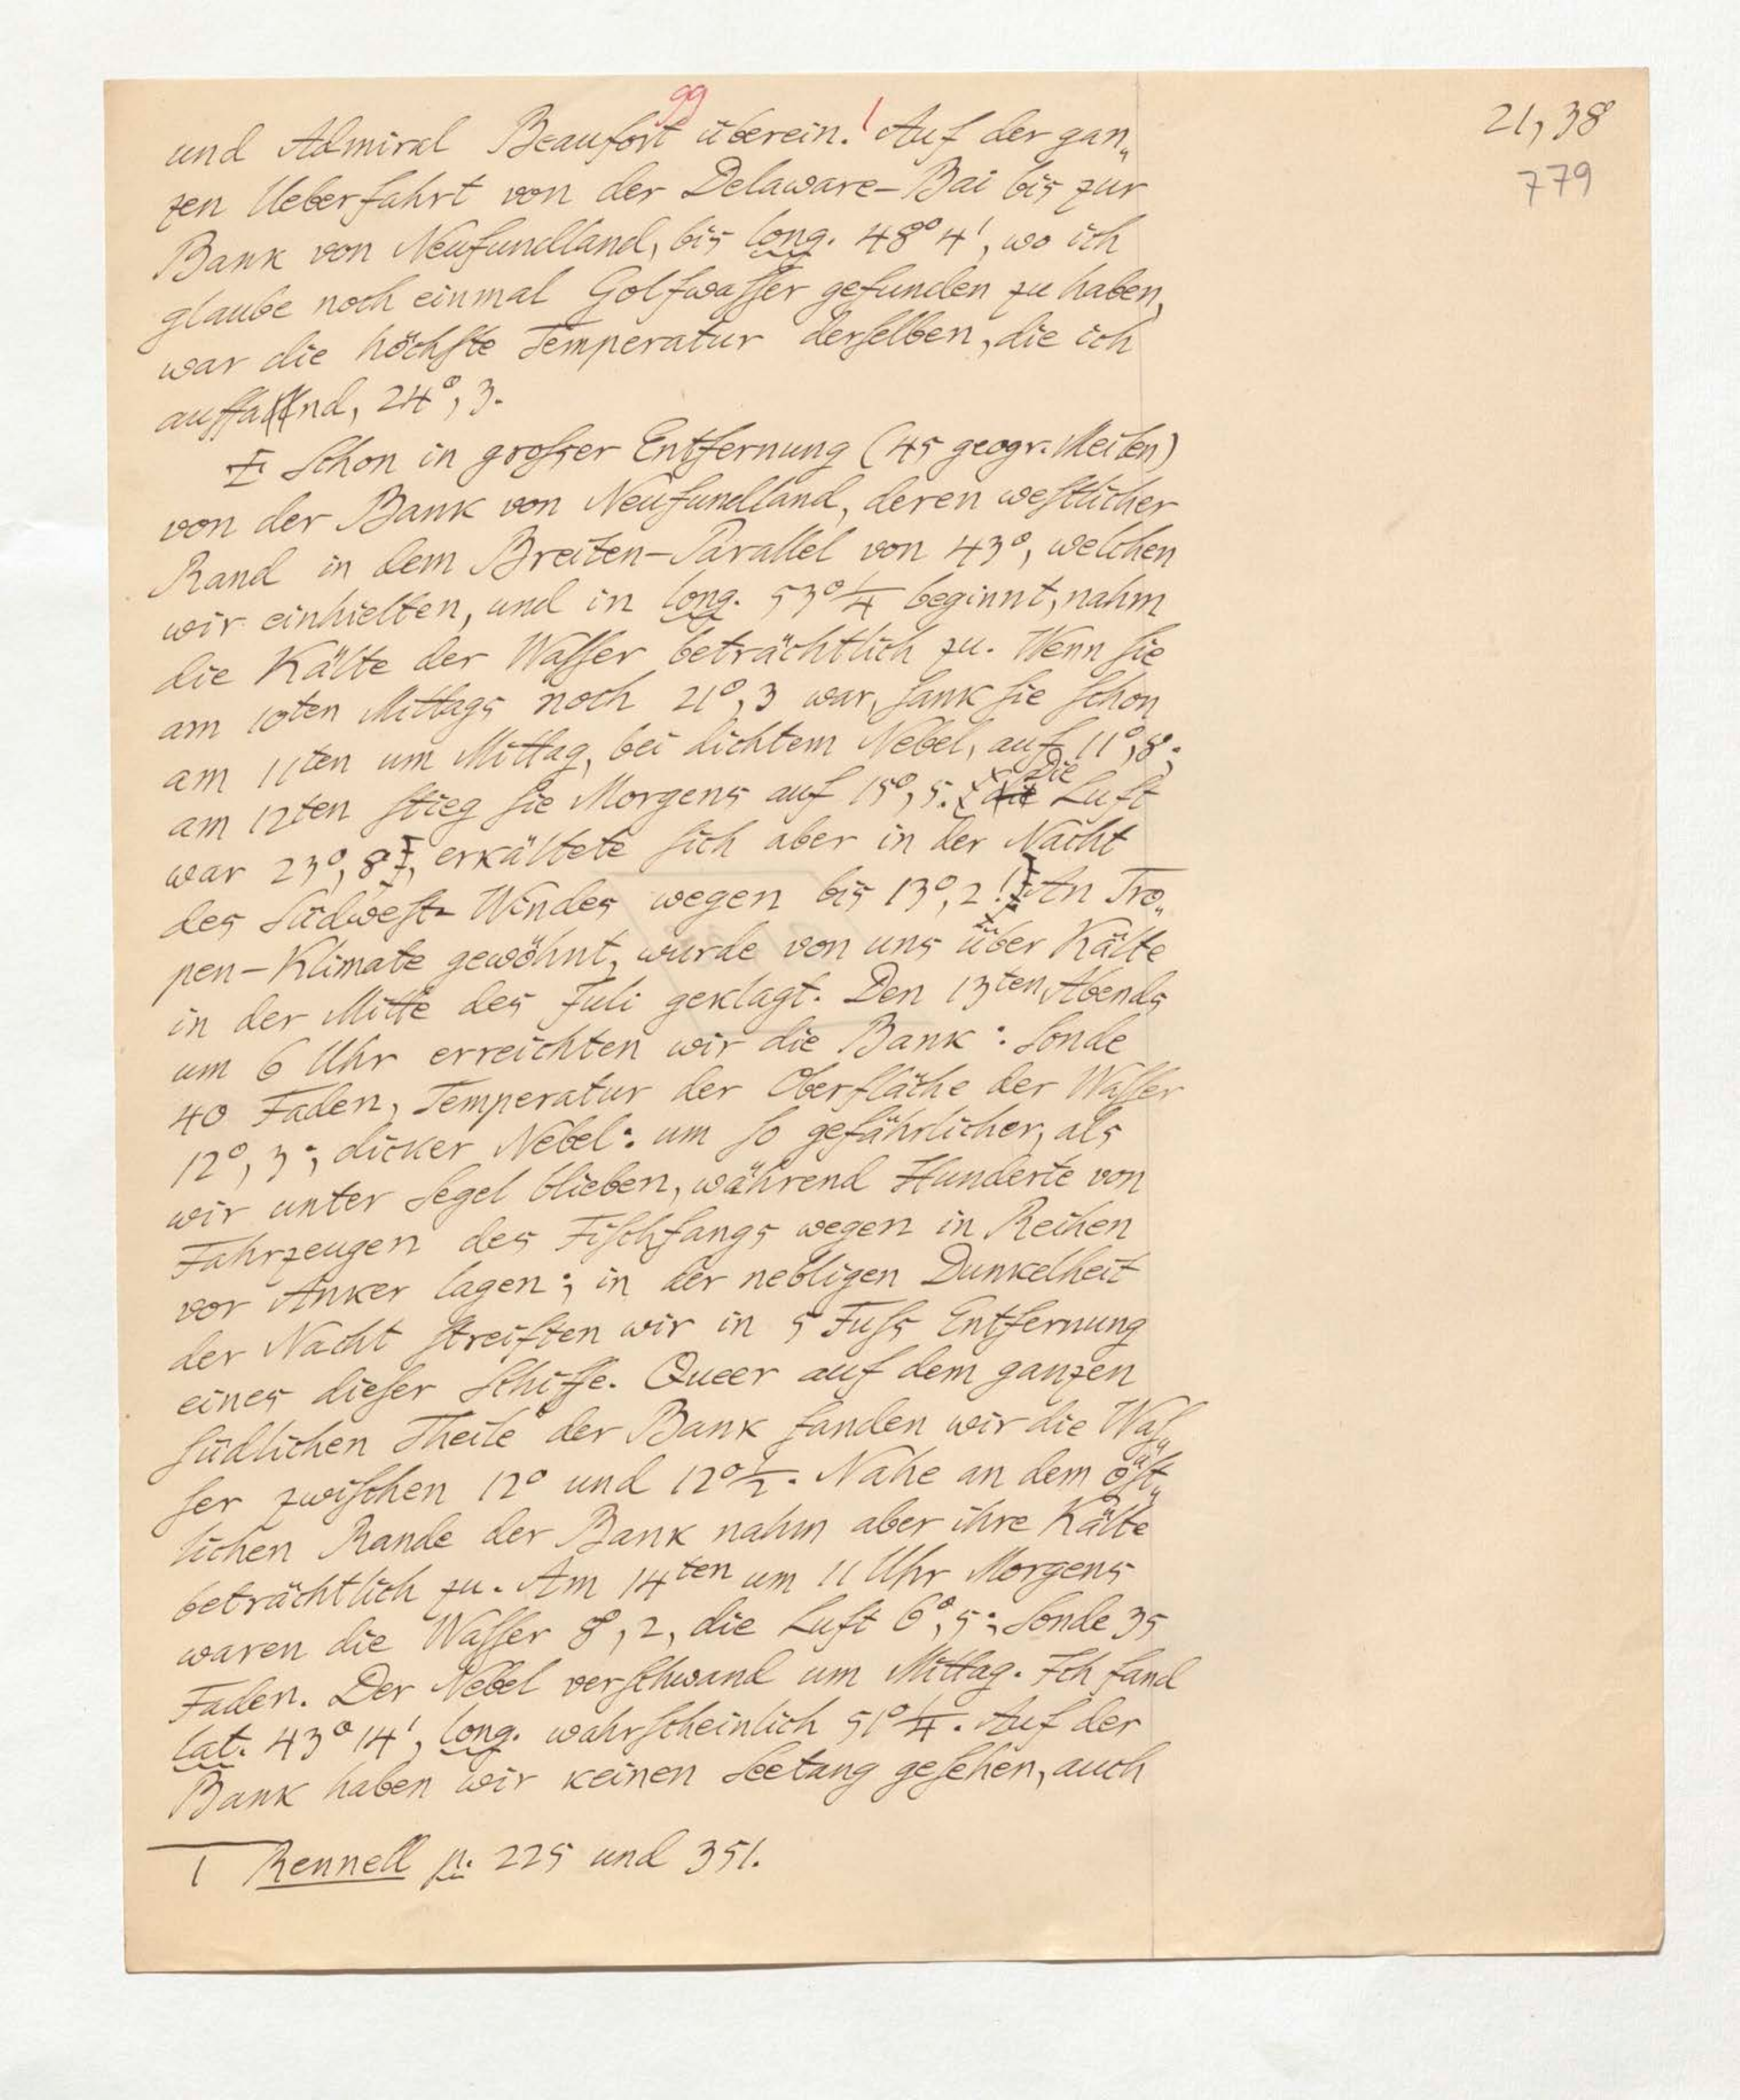 21, 38
779
99
und Admiral Beaufort überein.¹ Auf der gan„
zen Ueberfahrt von der Delaware-Bai bis zur
Bank von Neufundland, bis long. 48° 4', wo ich
glaube noch einmal Golfwasser gefunden zu haben,
war die höchste Temperatur derselben, die ich
auffand, 24°, 3.
Schon in grosser Entfernung (45 geogr. Meilen)
von der Bank von Neufundland, deren westlicher
Rand in dem Breiten-Parallel von 43°, welchen
wir einhielten, und in long. 53° 1/4 beginnt, nahm
die Kälte der Wasser beträchtlich zu. Wenn sie
am 10ten Mittags noch 21°, 3 war, sank sie schon
am 11ten um Mittag, bei dichtem Nebel, auf 11°, 8;
am 12ten stieg sie Morgens auf 15°, 5. Die Luft
war 23°, 8, erkältete sich aber in der Nacht
des Südwest-Windes wegen bis 13°, 2! An Tro„
pen-Klimate gewöhnt, wurde von uns über Kälte
in der Mitte des Juli geklagt. Den 13ten Abends
um 6 Uhr erreichten wir die Bank: Sonde
40 Faden, Temperatur der Oberfläche der Wasser
12°, 3; dicker Nebel: um so gefährlicher, als
wir unter Segel blieben, während Hunderte von
Fahrzeugen des Fischfangs wegen in Reihen
vor Anker lagen; in der nebligen Dunkelheit
der Nacht streiften wir in 5 Fuss Entfernung
eines dieser Schiffe. Queer auf dem ganzen
südlichen Theile der Bank fanden wir die Was„
ser zwischen 12° und 12° 1/2. Nahe an dem öst„
lichen Rande der Bank nahm aber ihre Kälte
beträchtlich zu. Am 14ten um 11 Uhr Morgens
waren die Wasser 8°, 2, die Luft 6°, 5; Sonde 35
Faden. Der Nebel verschwand um Mittag. Ich fand
lat. 43° 14', long. wahrscheinlich 51° 1/4. Auf der
Bank haben wir keinen Seetang gesehen, auch
1 Rennell p. 225 und 351.